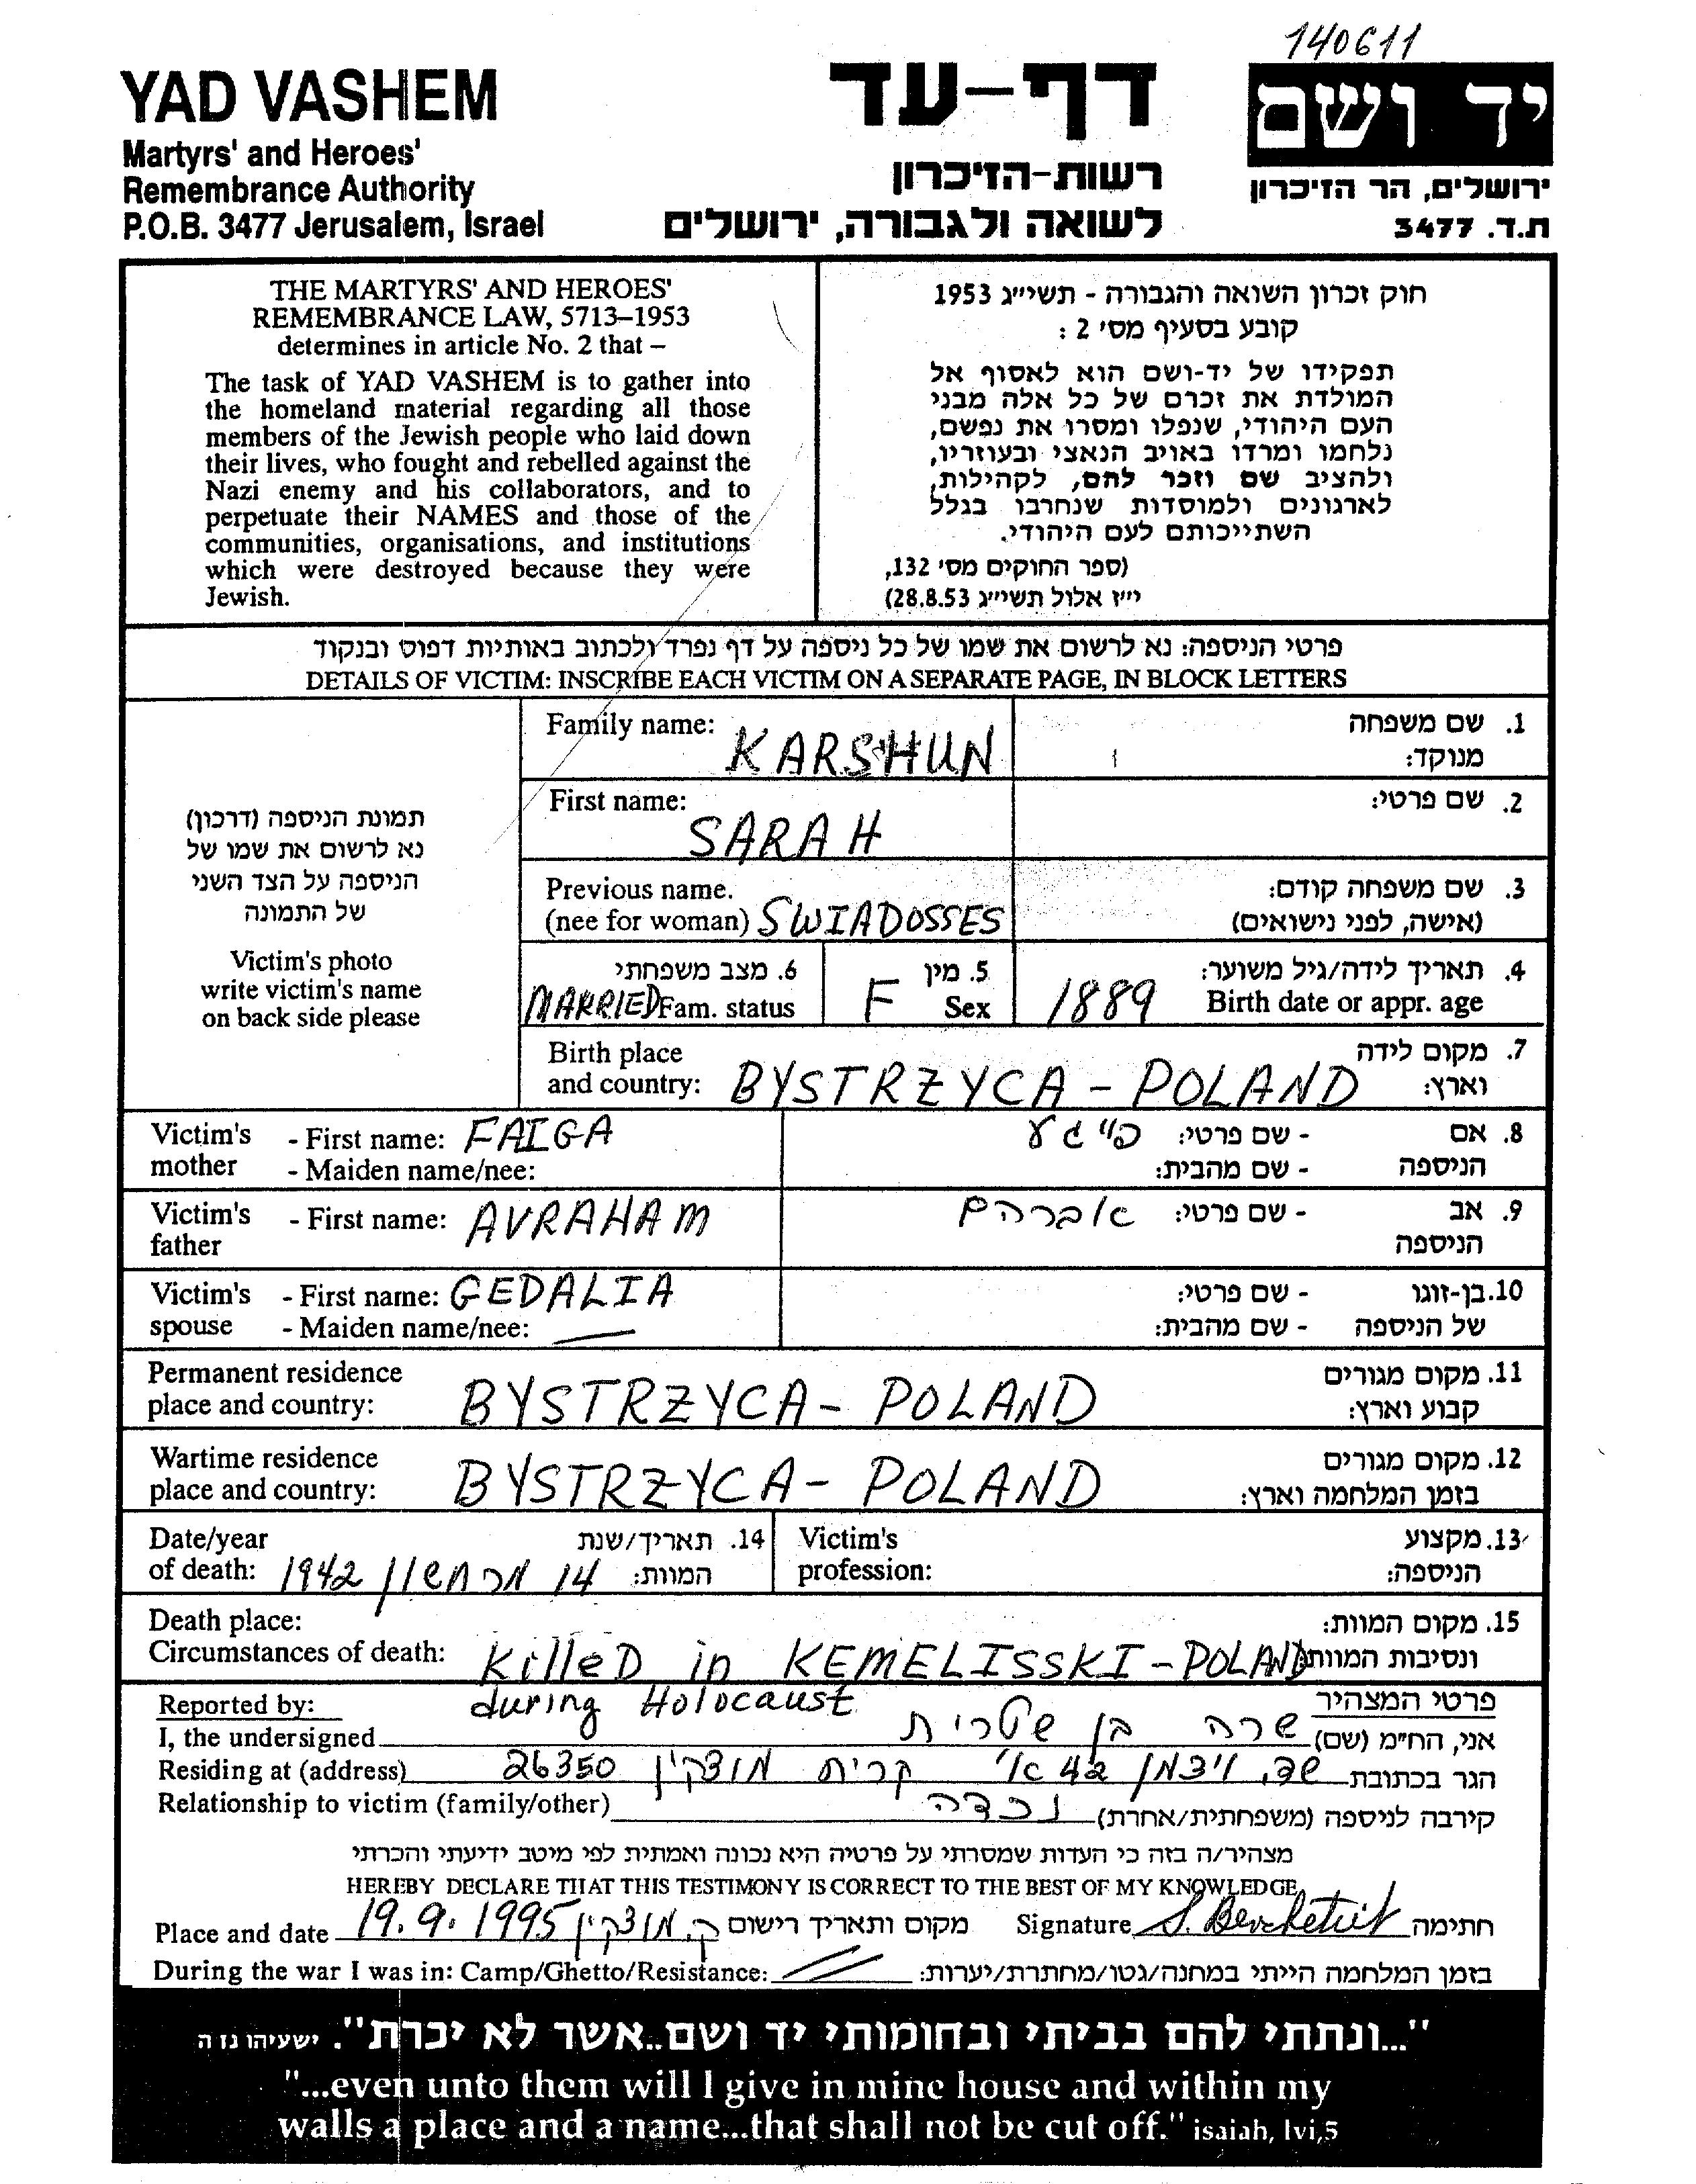 140611
YAD VASHEM
Martyrs' and Heroes'
Remembrance Authority
P.O.B. 3477 Jerusalem, Israel
דף-עד
רשות-הזיכרון
לשואה ולגבורה, ירושלים
יד ושם
ירושלים, הר הזיכרון
ת.ד. 3477
THE MARTYRS' AND HEROES'
REMEMBRANCE LAW, 5713–1953
determines in article No. 2 that –
The task of YAD VASHEM is to gather into
the homeland material regarding all those
members of the Jewish people who laid down
their lives, who fought and rebelled against the
Nazi enemy and his collaborators, and to
perpetuate their NAMES and those of the
communities, organisations, and institutions
which were destroyed because they were
Jewish.
חוק זכרון השואה והגבורה - תשי״ג 1953
קובע בסעיף מס׳ 2 :
תפקידו של יד-ושם הוא לאסוף אל
המולדת את זכרם של כל אלה מבני
העם היהודי, שנפלו ומסרו את נפשם,
נלחמו ומרדו באויב הנאצי ובעוזריו,
ולהציב שם וזכר להם, לקהילות,
לארגונים ולמוסדות שנחרבו בגלל
השתייכותם לעם היהודי.
(ספר החוקים מס׳ 132,
י״ז אלול תשי״ג 28.8.53)
פרטי הניספה: נא לרשום את שמו של כל ניספה על דף נפרד ולכתוב באותיות דפוס ובנקוד
DETAILS OF VICTIM: INSCRIBE EACH VICTIM ON A SEPARATE PAGE, IN BLOCK LETTERS
תמונת הניספה (דרכון)
נא לרשום את שמו של
הניספה על הצד השני
של התמונה
Victim's photo
write victim's name
on back side please
Family name: KARSHUN
1. שם משפחה
מנוקד:
First name: SARAH
2. שם פרטי:
Previous name.
(nee for woman) SWIADOSSES
3. שם משפחה קודם:
(אישה, לפני נישואים)
6. מצב משפחתי
MARRIED Fam. status
5. מין
F Sex
4. תאריך לידה/גיל משוער:
1889 Birth date or appr. age
Birth place
and country: BYSTRZYCA - POLAND
7. מקום לידה
וארץ:
Victim's - First name: FAIGA
mother - Maiden name/nee:
8. אם - שם פרטי: פייגע
הניספה - שם מהבית:
Victim's - First name: AVRAHAM
father
9. אב - שם פרטי: אברהם
הניספה
Victim's - First name: GEDALIA
spouse - Maiden name/nee: —
10. בן-זוגו - שם פרטי:
של הניספה - שם מהבית:
Permanent residence
place and country: BYSTRZYCA - POLAND
11. מקום מגורים
קבוע וארץ:
Wartime residence
place and country: BYSTRZYCA - POLAND
12. מקום מגורים
בזמן המלחמה וארץ:
Date/year
14. תאריך/שנת
of death: המוות: 14 מרחשוון 1942
Victim's
profession:
13. מקצוע
הניספה:
Death place:
15. מקום המוות:
Circumstances of death: KilleD in KEMELISSKI - POLAND
ונסיבות המוות:
during Holocaust
Reported by:
פרטי המצהיר
I, the undersigned
אני, הח״מ (שם) שרה בן שטרית
Residing at (address)
הגר בכתובת שד. ויצמן 42 א׳ קרית מוצקין 26350
Relationship to victim (family/other)
קירבה לניספה (משפחתית/אחרת) נכדה
מצהיר/ה בזה כי העדות שמסרתי על פרטיה היא נכונה ואמתית לפי מיטב ידיעתי והכרתי
HEREBY DECLARE THAT THIS TESTIMONY IS CORRECT TO THE BEST OF MY KNOWLEDGE
Place and date מקום ותאריך רישום ק. מוצקין 19.9.1995
Signature חתימה
During the war I was in: Camp/Ghetto/Resistance:
בזמן המלחמה הייתי במחנה/גטו/מחתרת/יערות:
"...ונתתי להם בביתי ובחומותי יד ושם..אשר לא יכרת". ישעיהו נו ה
"...even unto them will I give in mine house and within my
walls a place and a name...that shall not be cut off." isaiah, lvi,5